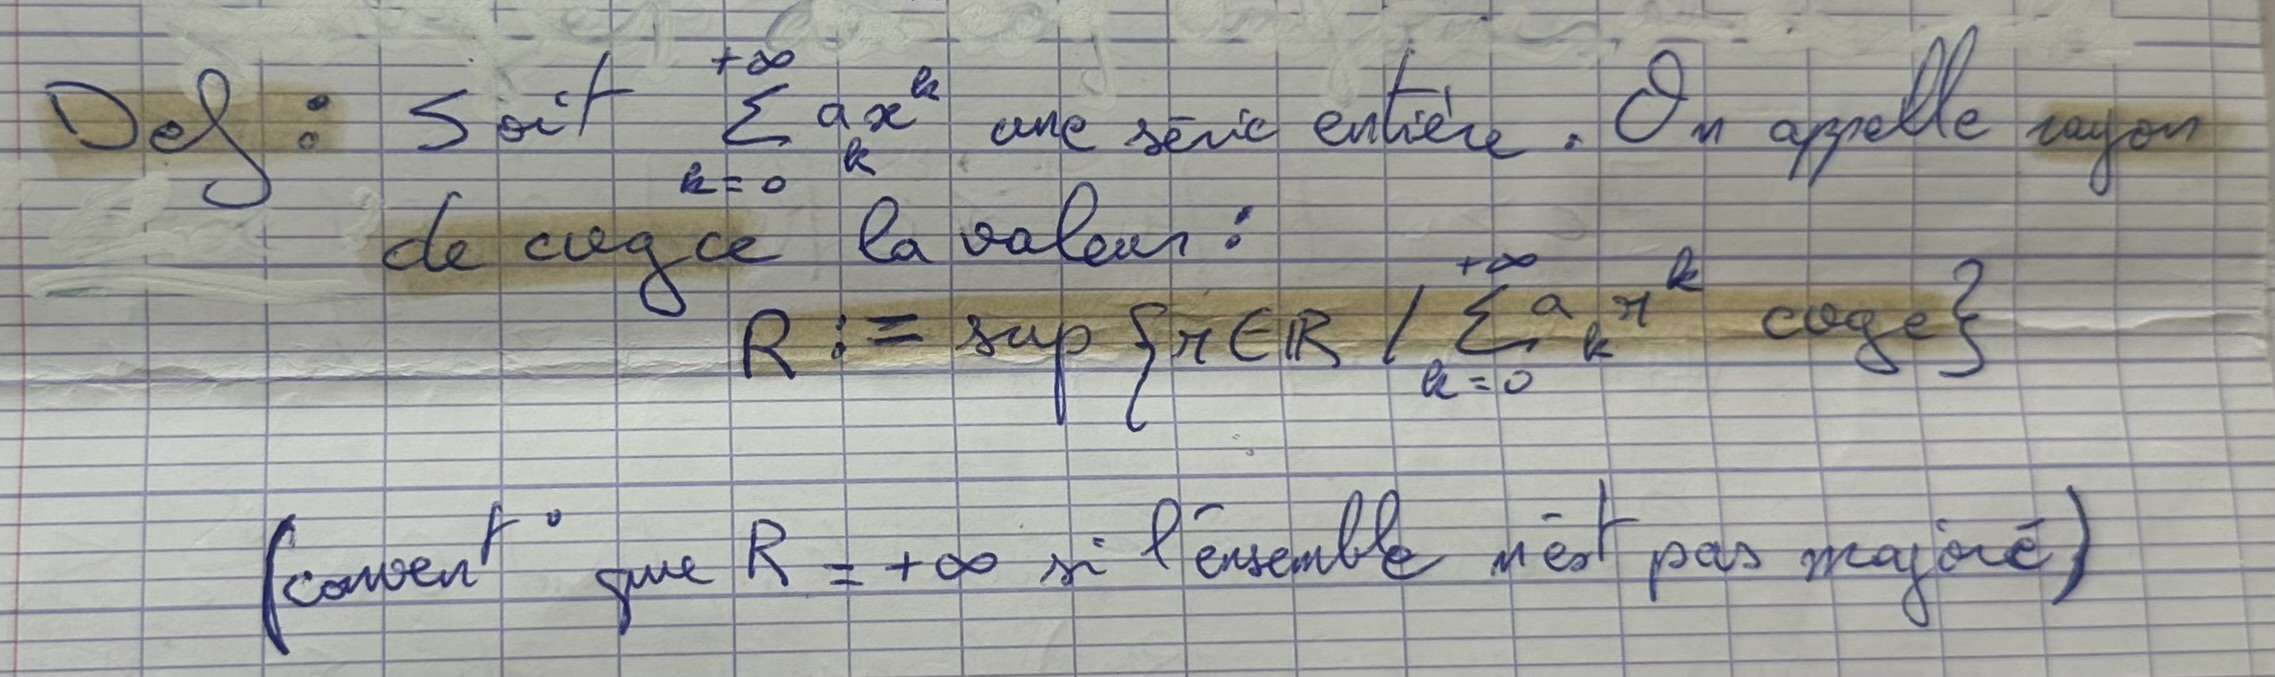 Def : Soit $\sum_{k=0}^{+\infty} a_k x^k$ une série entière. On appelle rayon
de cvgce la valeur :
$R := \sup \{ r \in \mathbb{R} / \sum_{k=0}^{+\infty} a_k r^k \text{ cvge} \}$
(convent° que $R = +\infty$ si l'ensemble n'est pas majoré)